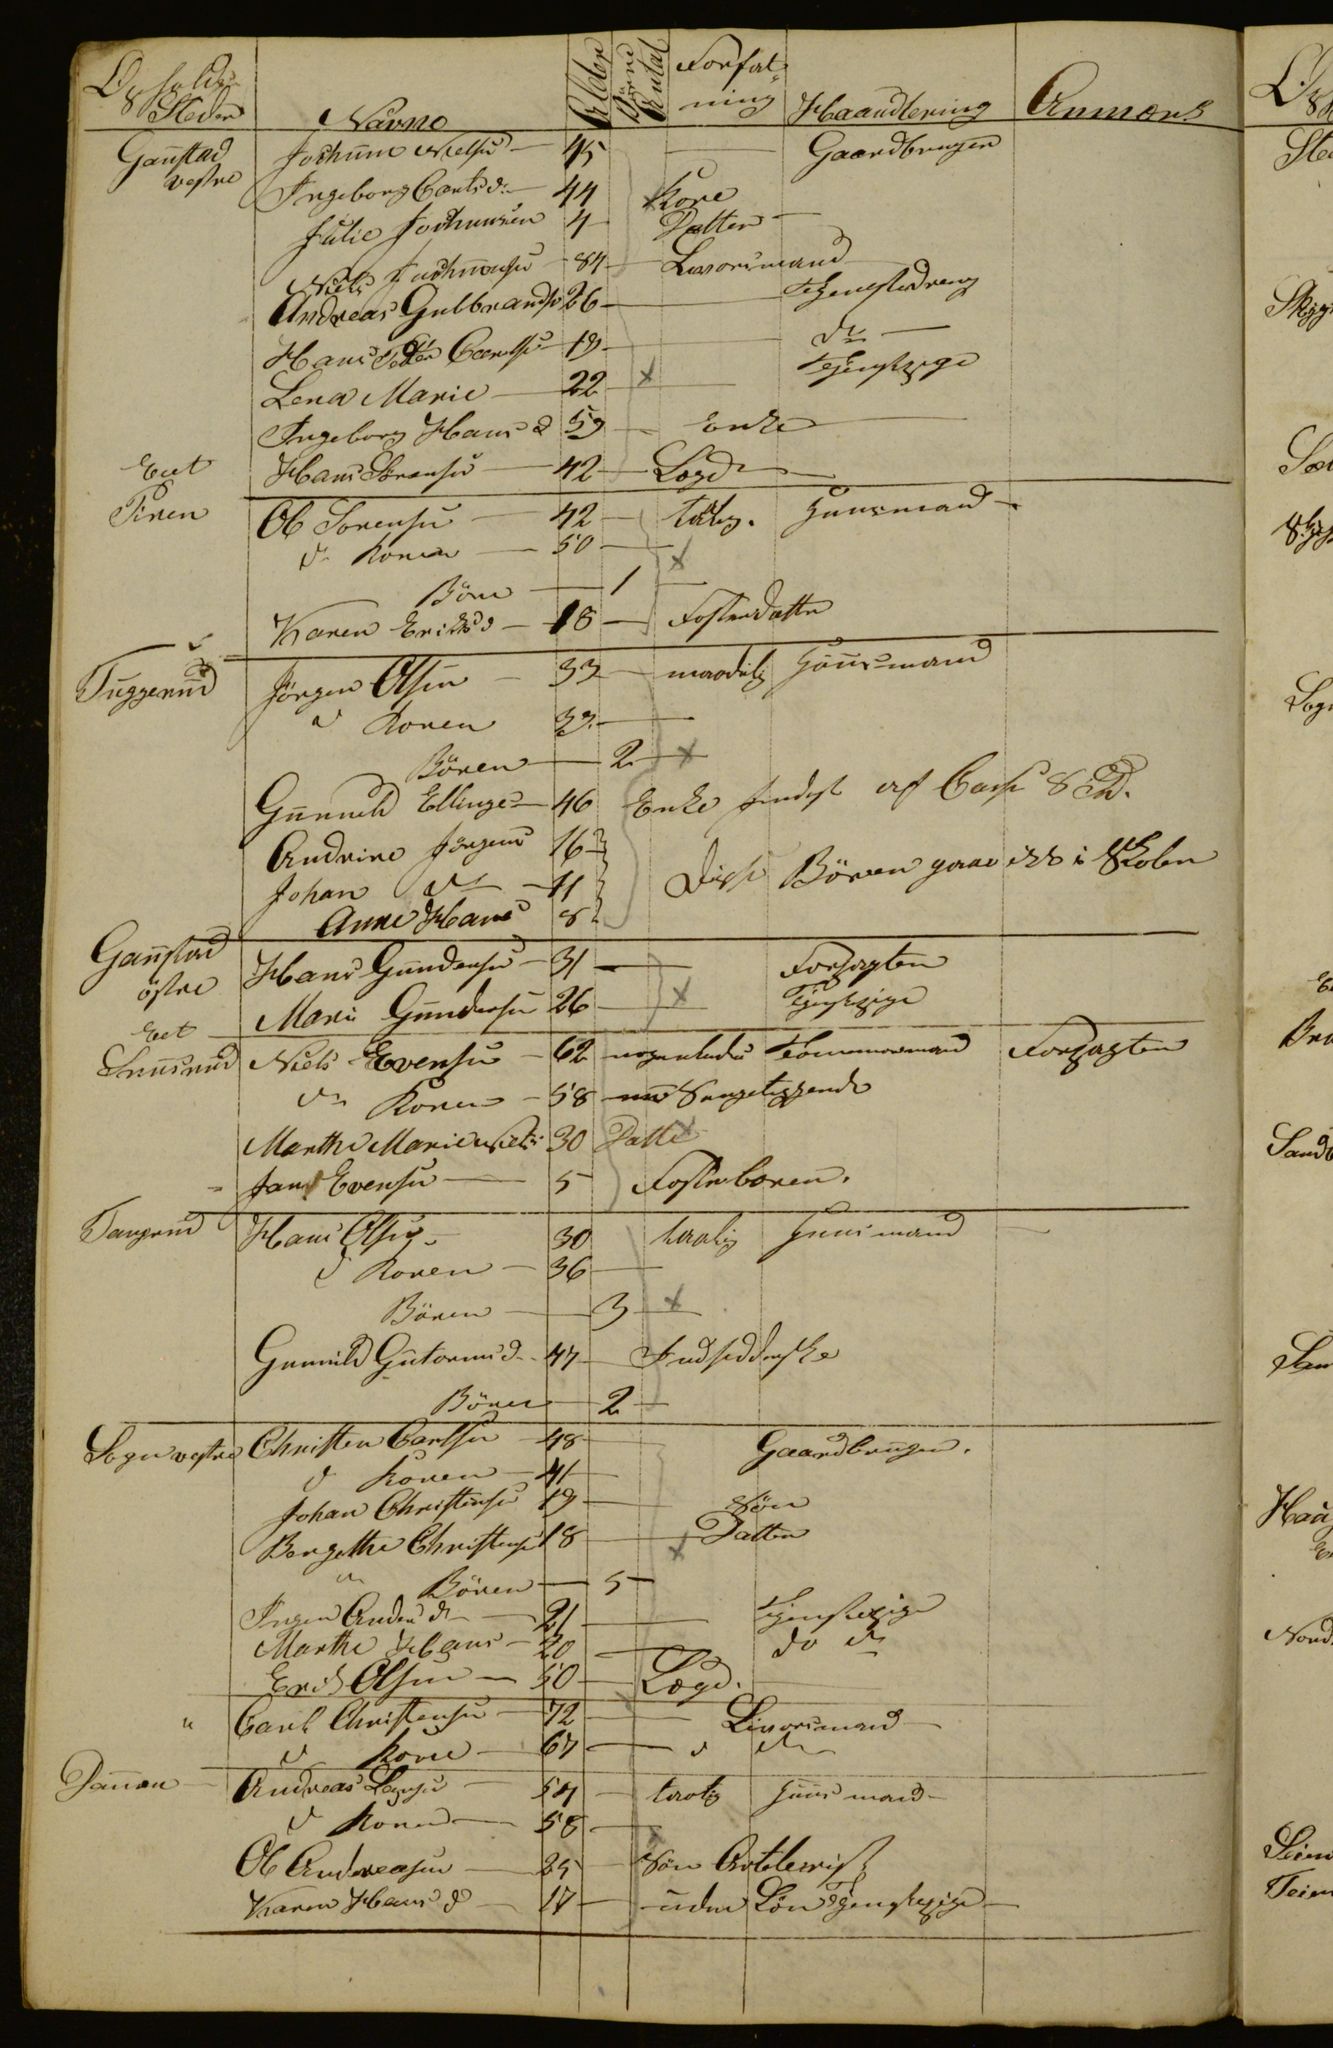 Opholds Steder Navne Alder Börns Antal Forfatning Haandtering Anmærk
Gaustad vestre Jochum Nielsen 45 — Gaardbruger
Ingeborg Carls d. 44 Kone
Julie Jochumsen 4 Datter
Niels Jochumsen 84 Livorsmand
Andreas Gulbrands 26 — Tjenestedreng
Hans Peder Carelsen 19 — do
Lena Marie 22 — Tjenestpige
Ingeborg Hans d 59 — Enke
Hans 42 Lægd
Eiet
Ole Sorensen 42 taalig. Huusmand
do Konen 50
Börn — 1
Karen Eriks d 18 Fosterdatter
Tuggerud Jörgen Olsen 33 maadelig Huusmand
do Konen 33
Bören — 2
Gunnild Ellings 46 Enke af Casse 8 Sp.
Andrine Jörgens 16
Johan do 11 Disse Bören gaae ikke i Skolen
Anne Hans 8
Gaustad östre Hans Gundersen 31 — Forpagter
Marie Gundersen 26 — Tjenstpige
Eiet
Niels Evensen 62 nogenledes Tömmermand Forpagter
do Konen 58 nu Sengeliggende
Marthe Marie Niels 30 Datter
Evensen 5 Fosterbaren.
Tangerud Hans Olsen 30 taalig Huusmand
d Konen 36
Bören — 3
Gunnild Gutorms d. 47 Indsidderske
Bören 2
Sogn vestre Christen Carlsen 48 — Gaardbruger.
d Konen 41
Johan Christensen 19 Sön
Bergethe Christens 18 Datter
" Bören — 5
Inger Anders d 21 — Tjenstepige
Marthe Hans 20 — do do
Erik Olsen 50 — Lægd.
" Carl Christensen 72 — Livorsmand
d Kone 67 — d do
Andreas 54 taalig Huusmand
d Konen 58
Ole Andreasen 25 Sön
Karen Hans d 17 — uden Lön Tjenstepige